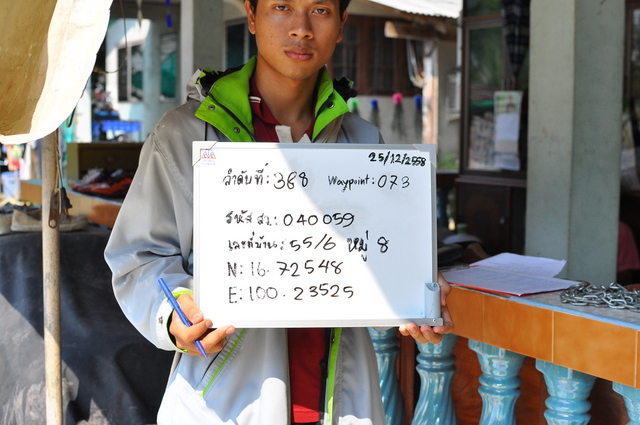 25/12/2558
ลำดับที่: 368 Waypoint: 073
รหัส สว.: 040059
เลขที่บ้าน: 55/6 หมู่ 8
N: 16.72548
E: 100.23525